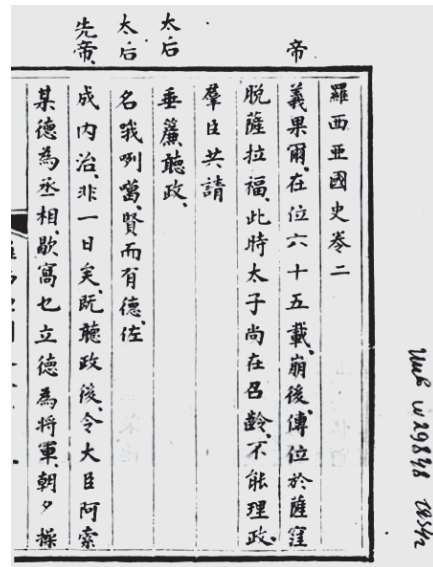 羅西亞國史卷二
帝義果爾、在位六十五載、崩後、傳位於薩窪
脫薩拉福、此時太子尚在召齡、不能理政、
羣臣共請
太后垂簾聽政、
太后名哦咧噶、賢而有德、佐
先帝、成內治、非一日矣、既聽政後、令大臣阿索
某德為丞相、歇寫乜立德為將軍、朝夕操